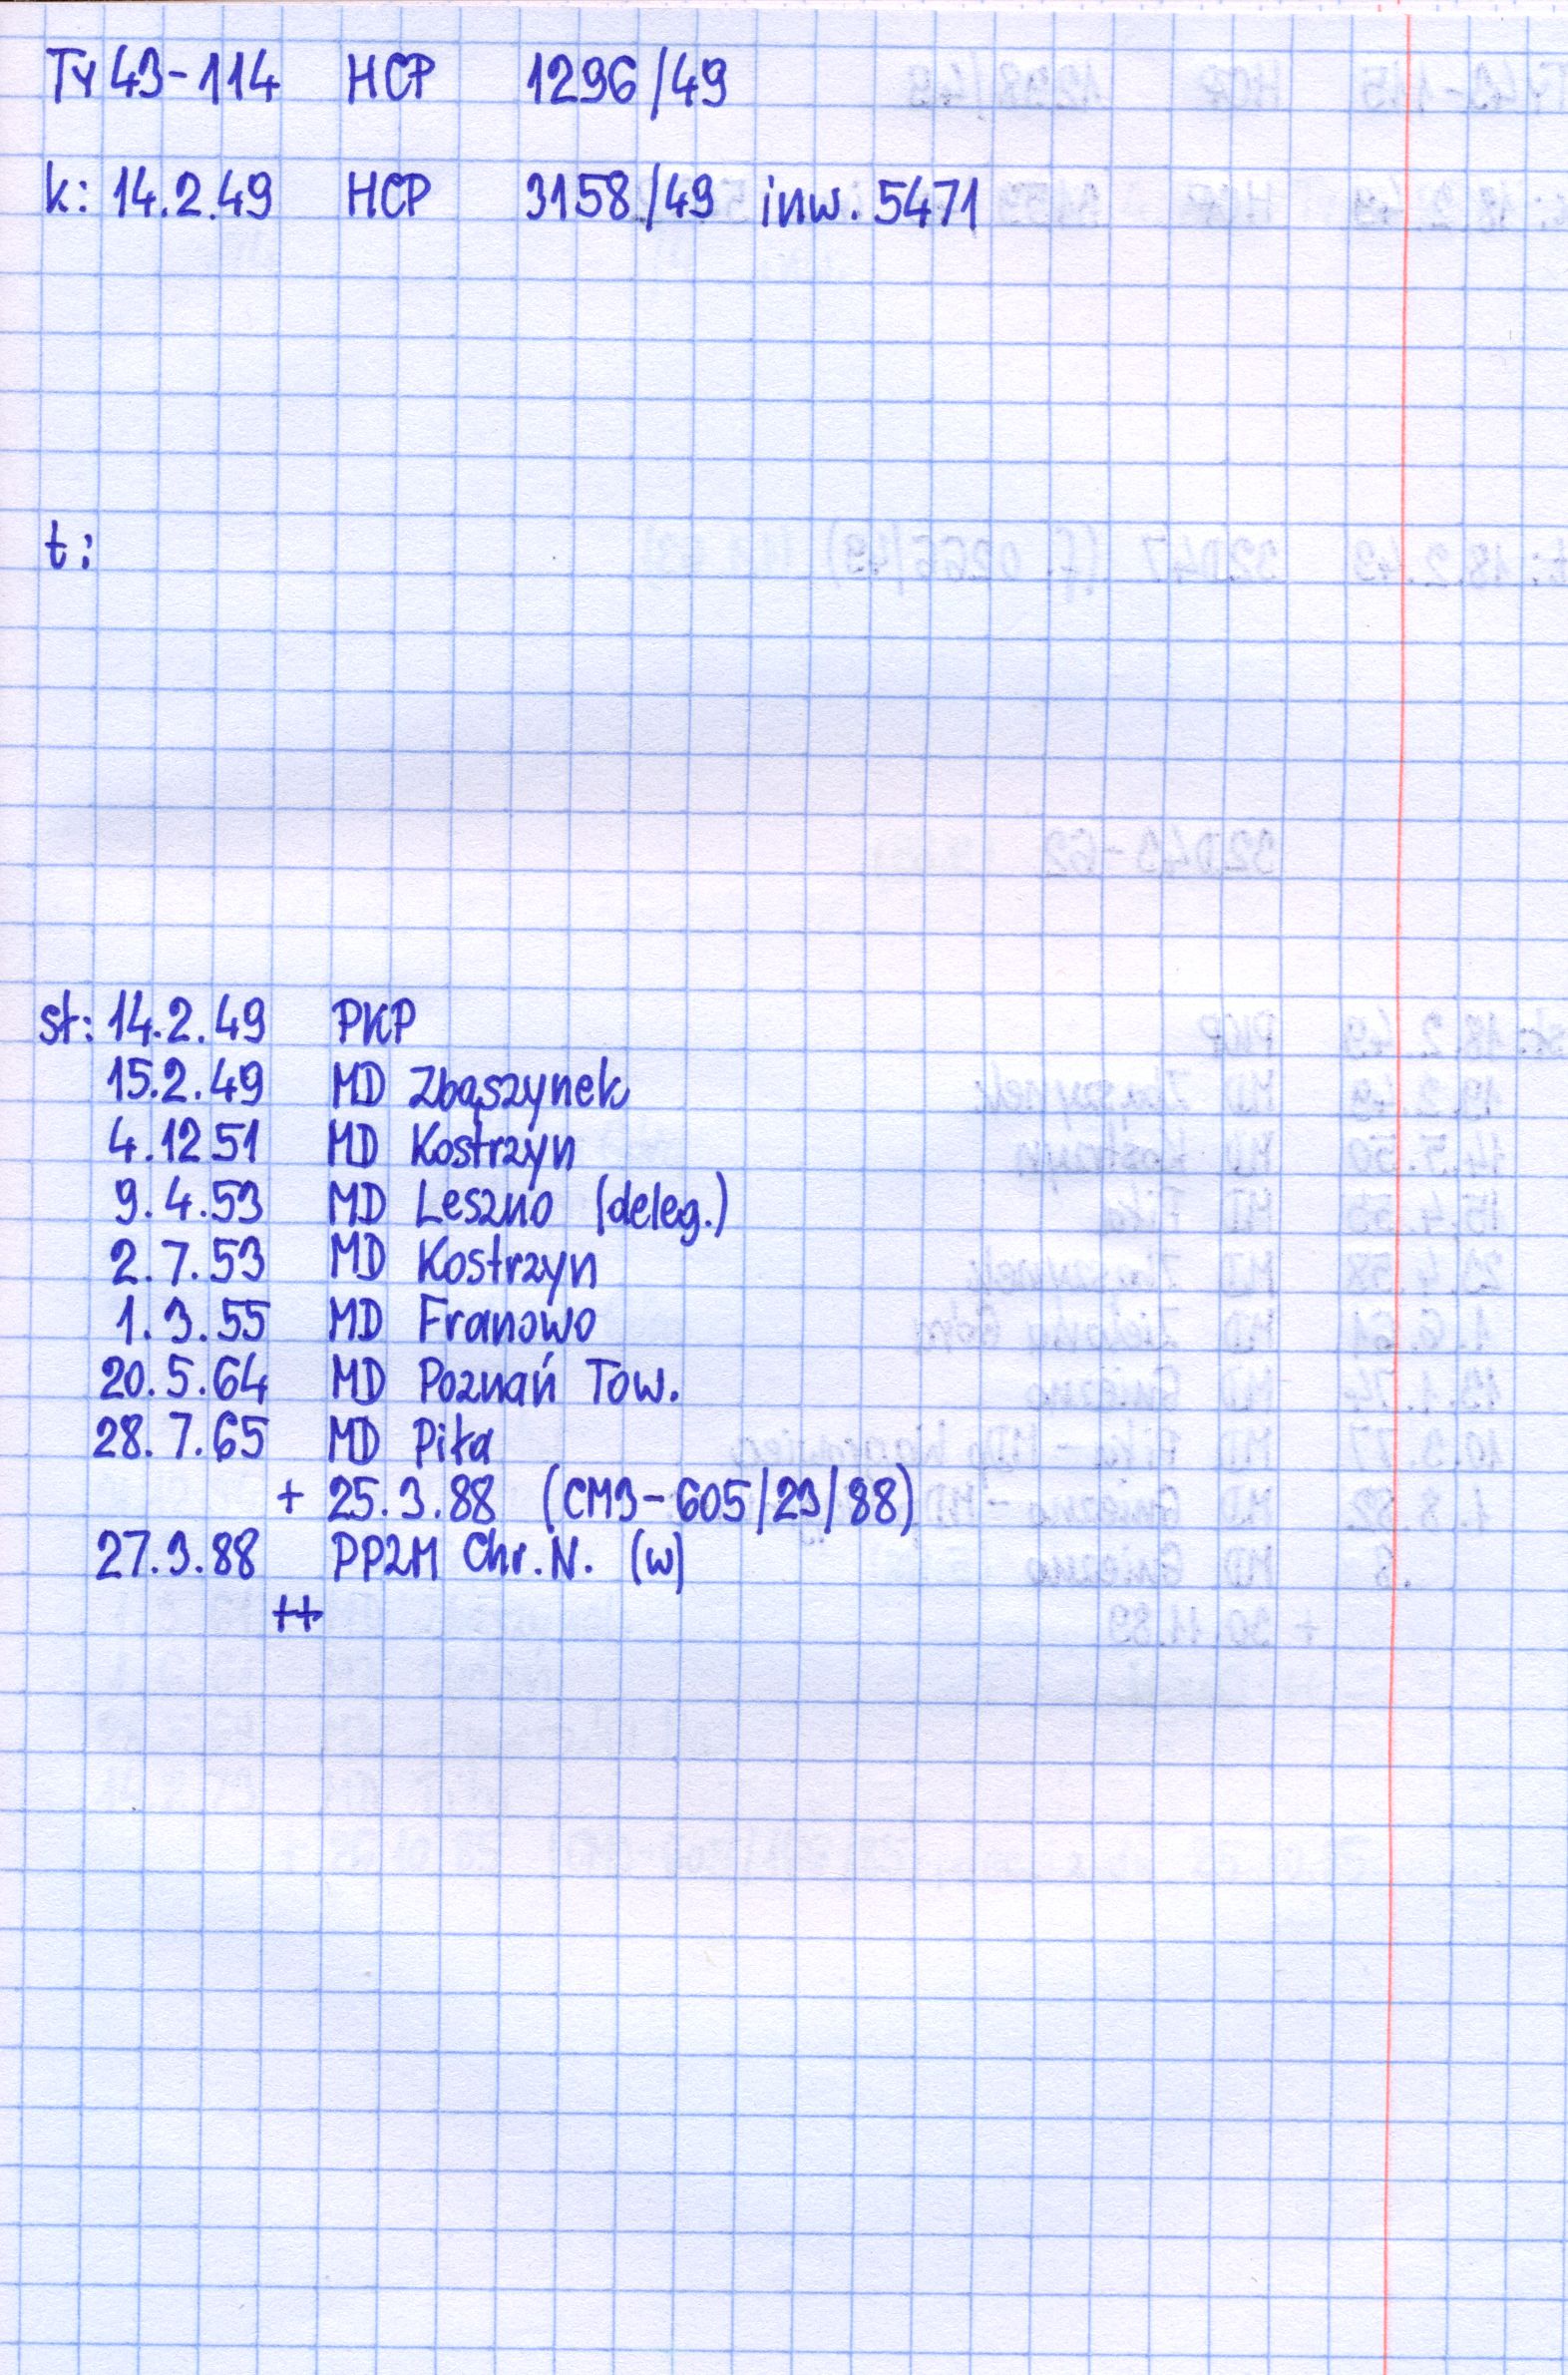 Ty43-114 HCP 1296/49
k: 14.2.49 HCP 3158/49 inw. 5471
t:
st: 14.2.49 PKP
15.2.49 MD Zbąszynek
4.12.51 MD Kostrzyn
9.4.53 MD Leszno (deleg.)
2.7.53 MD Kostrzyn
1.3.55 MD Franowo
20.5.64 MD Poznań Tow.
28.7.65 MD Piła
+ 25.3.88 (CM3-605/23/88)
27.3.88 PPZM Chr.N. (w)
++